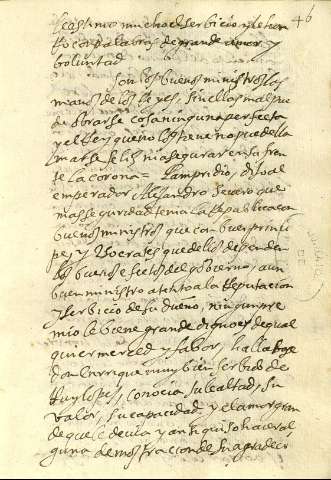 46
mucho el serbicio y le hon
palabras de grande amor y
boluntad
Son los buenos ministros los
manos de los Reyes, sin ellos mal pue
de obrarse cosa ninguna perfecta
y el Rey que no los tiene no puede lla
marse feliz ni asegurar en su fren
te la corona = Lampridio, dijo al
emperador Alejandro Severo que
mas seguridad tenia la Republica con
buenos ministros que con buen princi
pe, y Socrates que de los depend
los buenos efectos del gobierno, a un
buen ministro atento a la Reputacion
y serbicio de su dueño, ningun pre
mio le biene grande digno es de qual
quier merced y fabor, hallabase
don Enrrique muy bien serbido de
Ruy lopes, conocia su lealtad, su
valor, su capacidad y el amor gran
de que le devia y anti quiso hacer al
guna demostracion de su agradeci